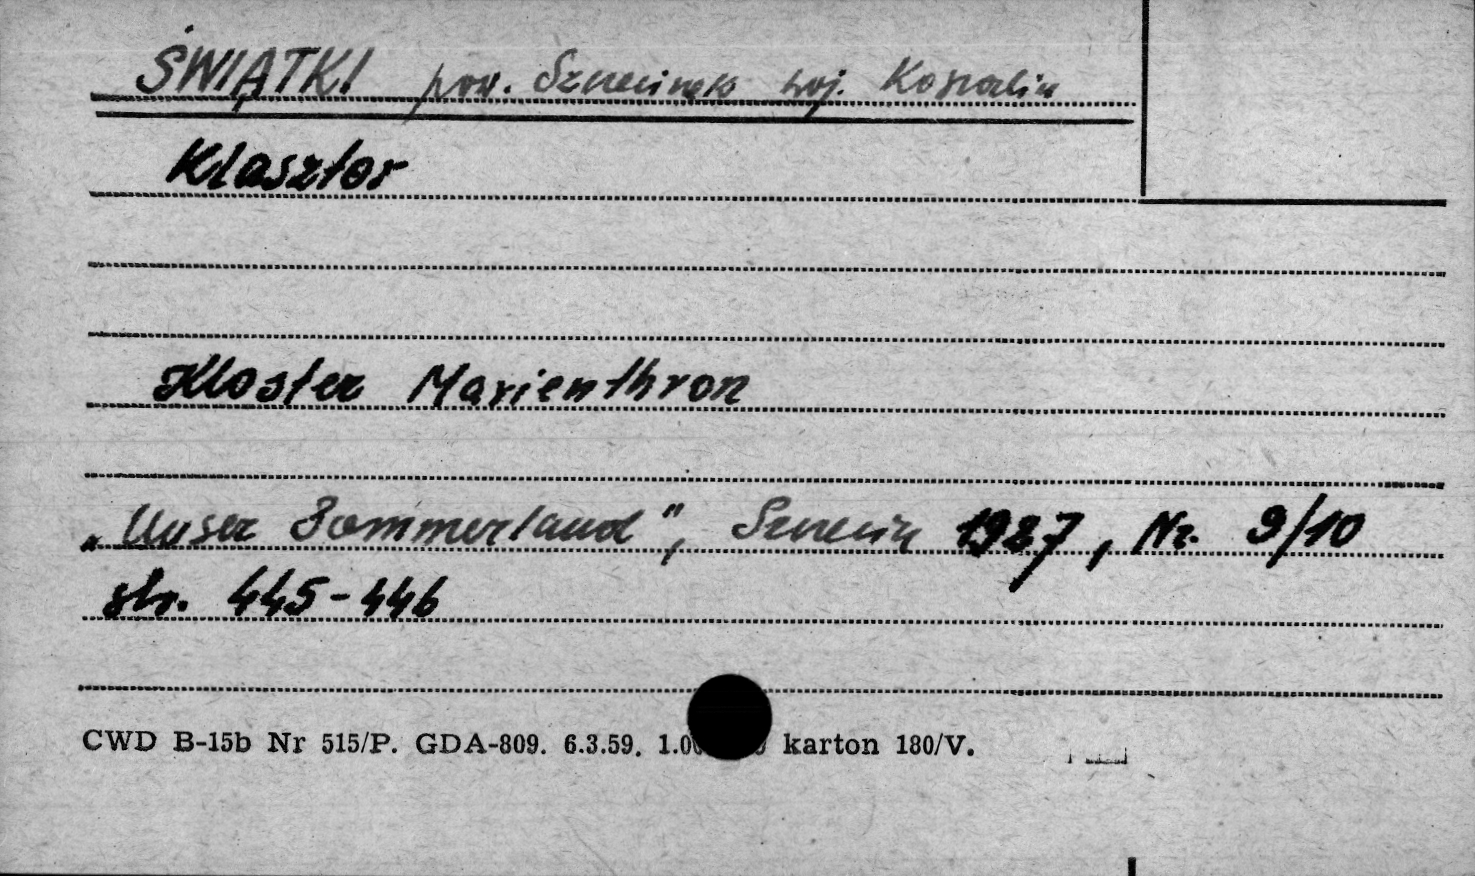 ŚWIĄTKI pow. Szczecinek woj. Koszalin
Klasztor
Kloster Marienthron
„Unser Pommerland", Szczecin 1927, Nr. 9/10
str. 445-446
CWD B-15b Nr 515/P. GDA-809. 6.3.59. 1.00 karton 180/V.